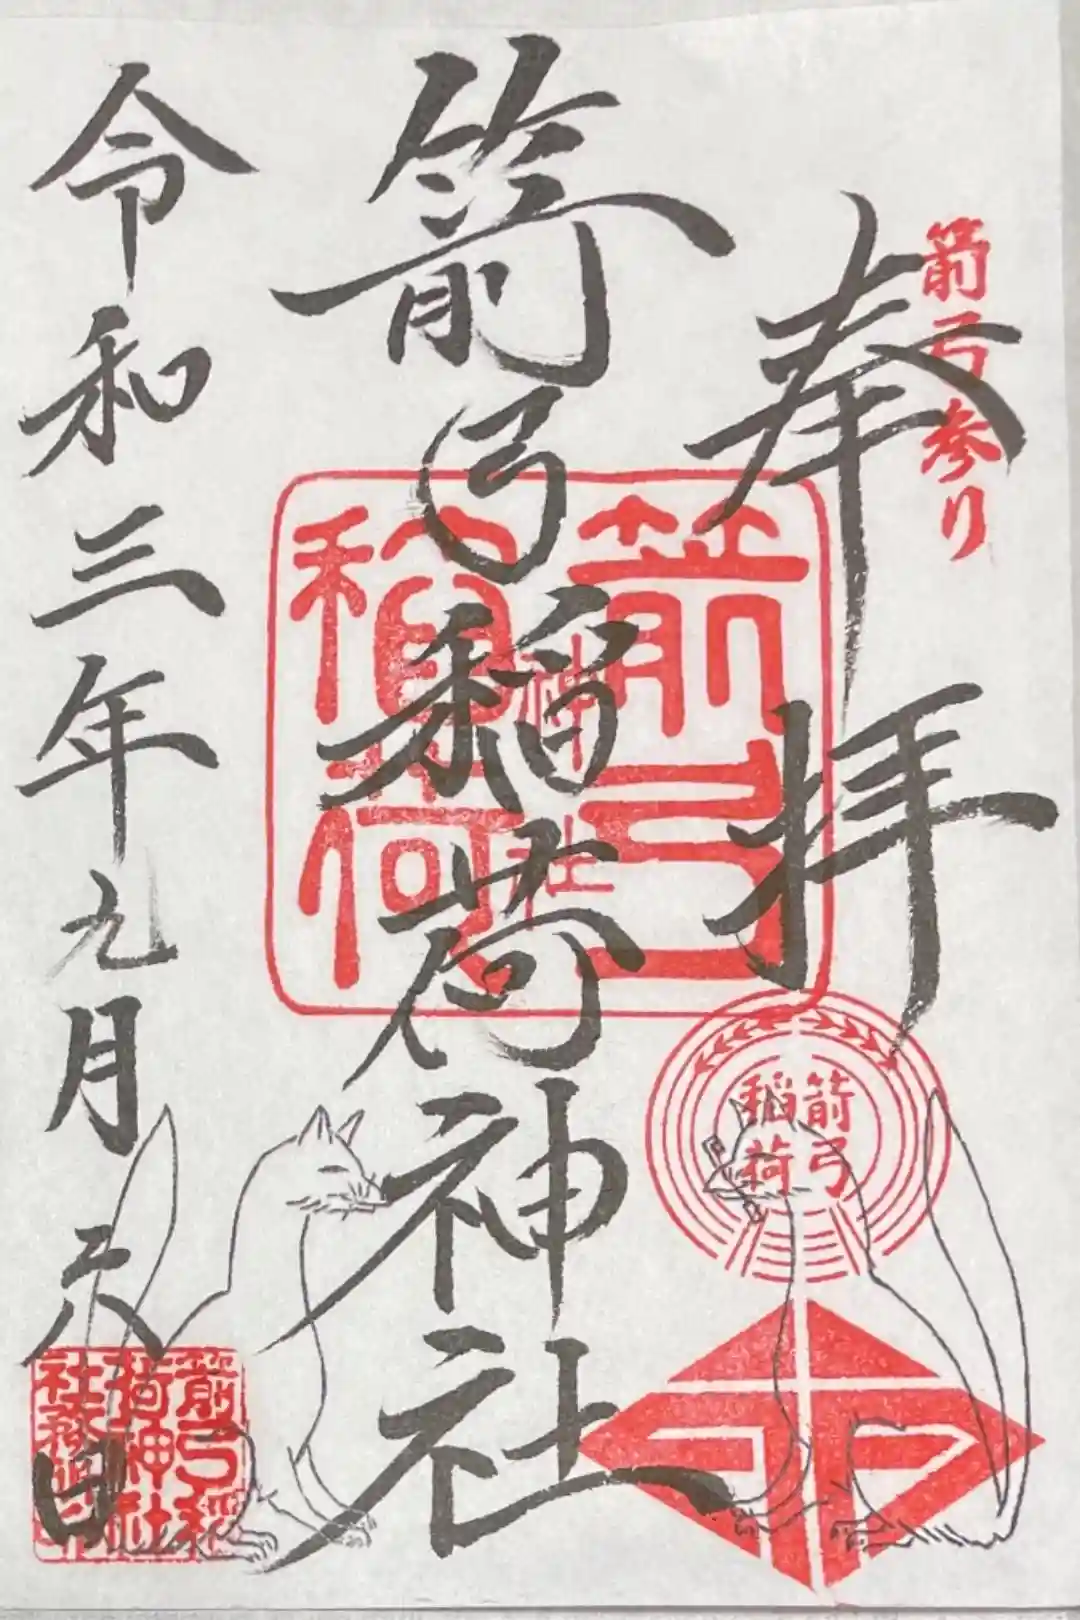 箭弓参り
奉拝
箭弓
稲荷
神社
箭弓稲荷神社
箭弓
稲荷
令和三年九月二八日
箭弓稲
荷神社
社務